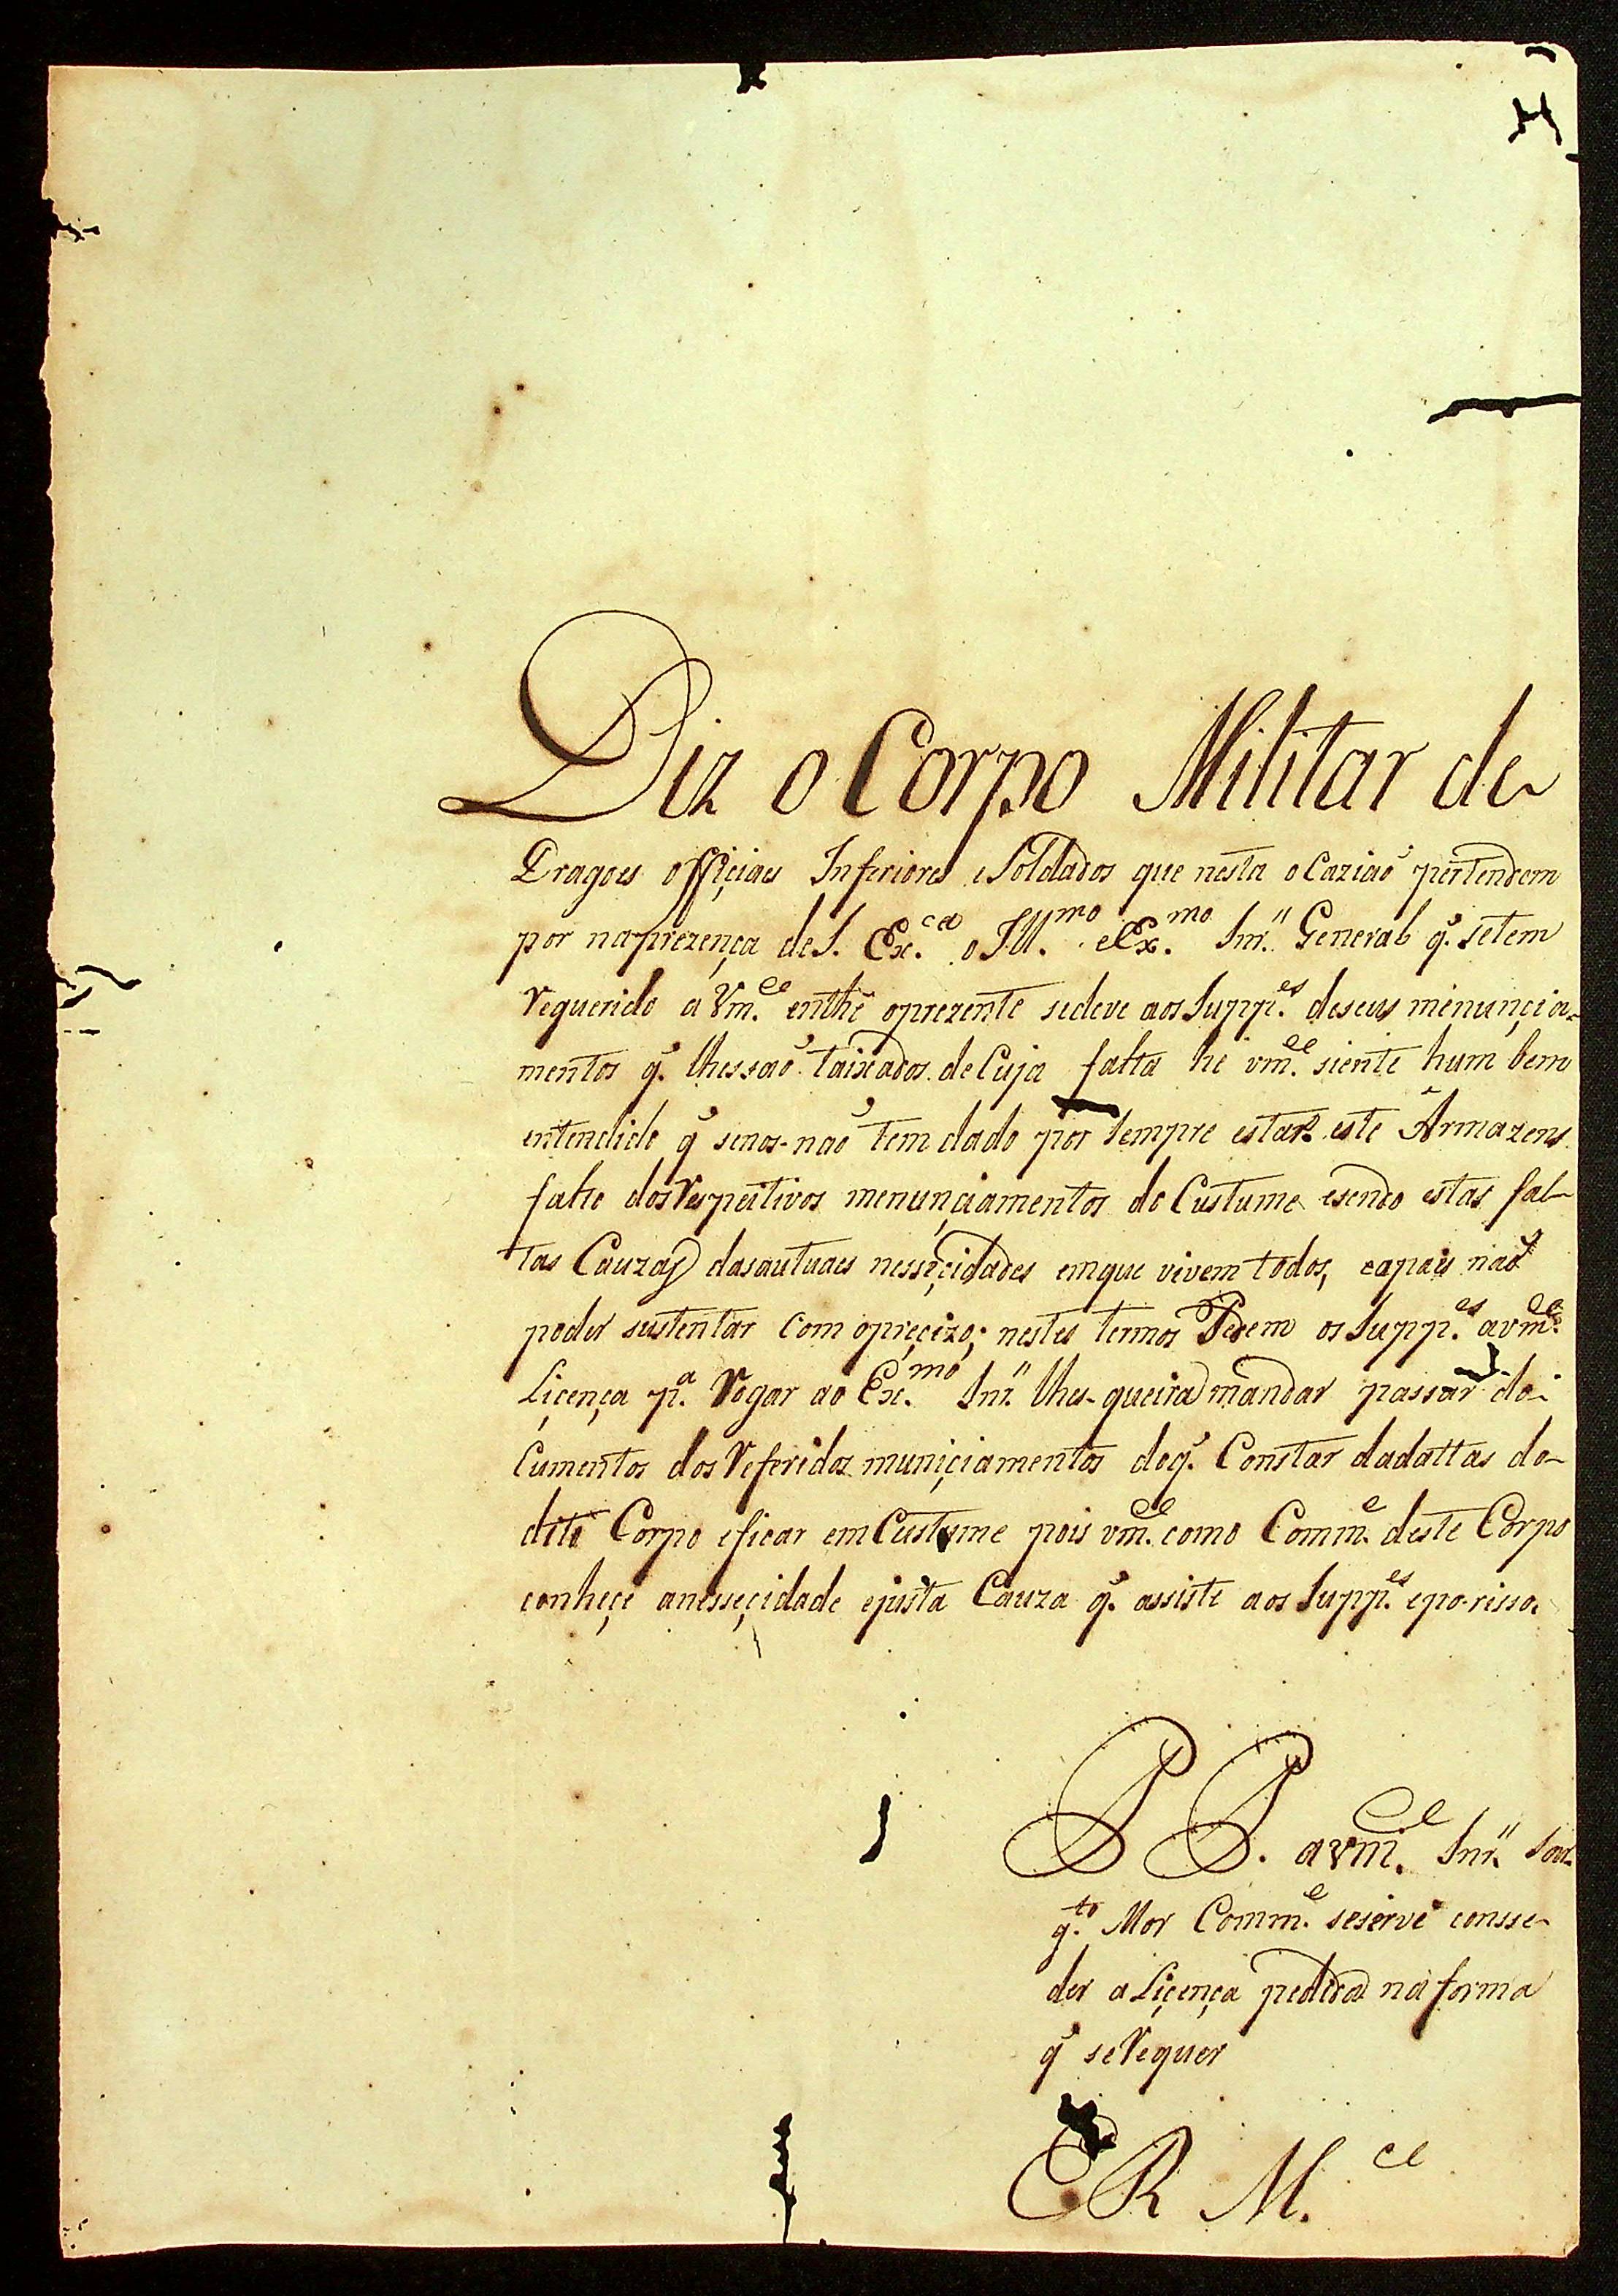 Diz o Corpo Militar de
Dragoes officiaes Inferiores e Soldados que nesta ocaziaõ pertendem
por naprezença de S. Ex.ca o Ill.mo e Ex.mo Snr. General q̃. setem
Requerido a Vm.ce enthe oprezente sedeve aos Supp.es deseus menunçia-
mentos q̃. lhessaõ taixados de Cuja falta he vm.ce siente hum bem
entendido q̃ senos naõ tem dado por sempre estar este Armazens
falto dos Respeitivos menunçiamentos do Custume esendo estas fal-
tas Cauzas dasautuaes nesseçidades emque vivem todos, eapais naõ
poder sustentar com opreçizo; nestes termos Pedem os Supp.es avm.ce
Liçença p.a Rogar ao Ex.mo Snr. lhes queira mandar passar do-
Cumentos dos Referidos muniçiamentos doq̃. Constar dadattas do-
dito Corpo eficar em Custume pois vm.ce como Comm.e deste Corpo
conheçe anesseçidade ejusta Cauza q̃. assiste aos Supp.es epo-risso.
P P. avm.ce Snr. Sar-
g.to Mor Comm.e seserve consse-
der a Liçença pedida na forma
q̃ seRequer
E R M.ce